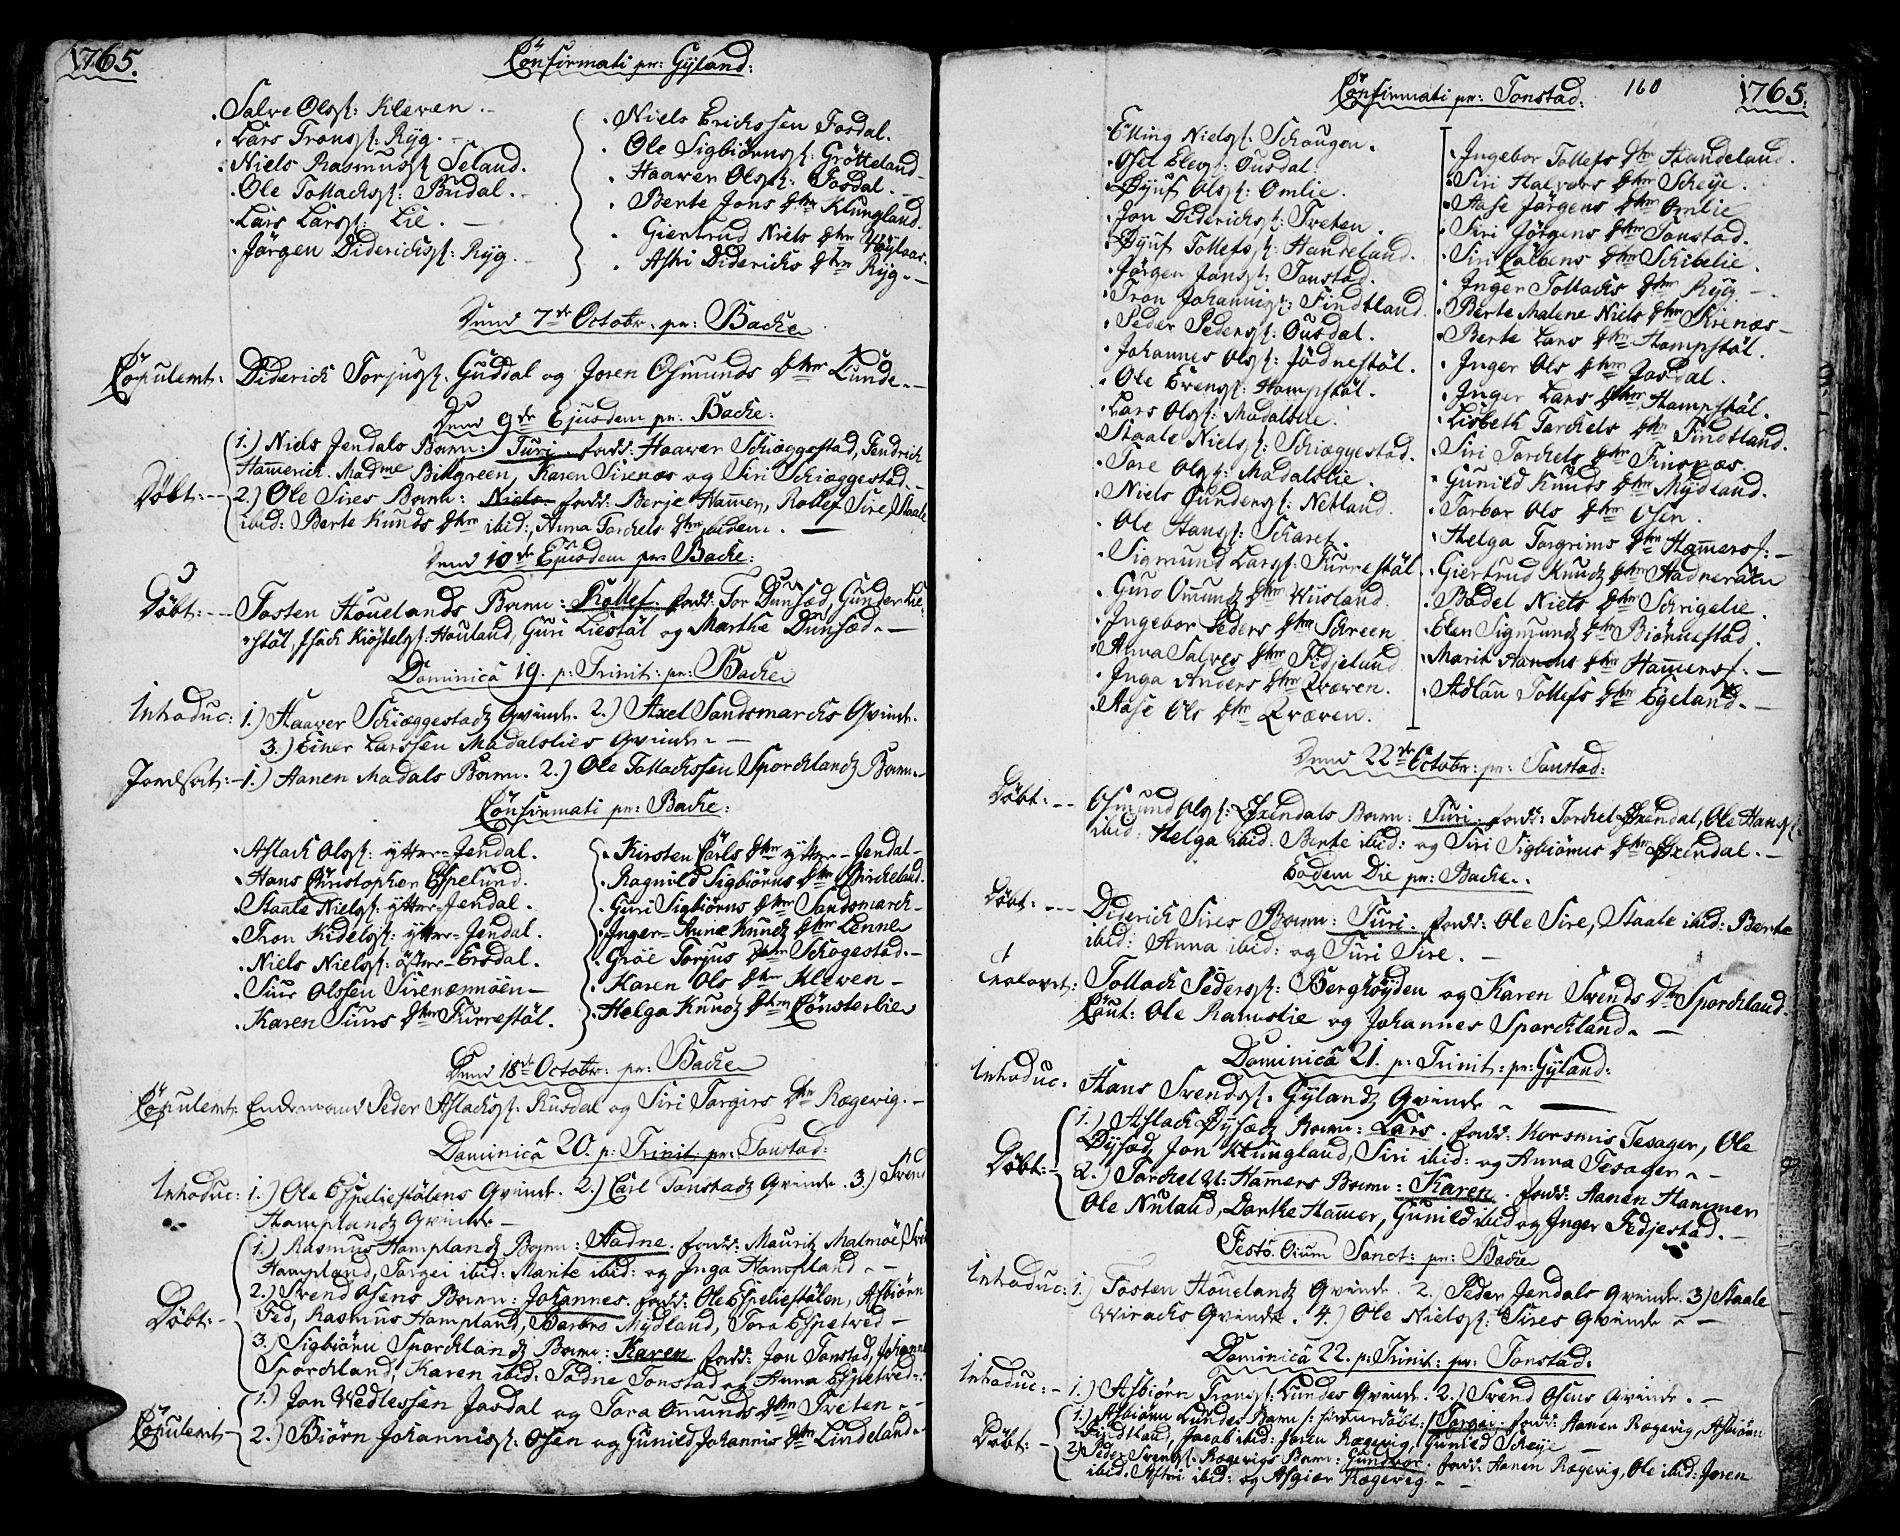 1765.
Confirmati pr: Gyland:
Salve Olsøn: Kleven.
Lars Trons: Ryg.
Niels Rasmus: Seland.
Ole Tollachs: Budal.
Lars Lars: Lie.
Jørgen Didericks: Ryg.
Niels Erickssen Josdal.
Ole Sigbiørns: Grøtteland
Haaver Ols: Josdal.
Berte Jons Dtr Klungland.
Giertrud Niels Dtr Høylaas.
Astri Didericks Dtr Ryg.
Dend 7de Octobr: pr: Backe
Copulemt: Diderick Torjus: Guddal og Joren Osmunds Dtr Lunde.
Dend 9de Ejusdem pr: Backe:
1.) Niels Jendals Barn: Turi. fadd: Haaver Schiæggestad, Fendrich
Hamerich. Madme Billgreen, Karen Sirenæs og Siri Schiæggestad.
Døbt: 2.) Ole Sires Barn: Niels. fadd: Berje Hamer, Rollef Sire, Staale
ibid: Berte Knuds Dtr ibid: Anna Torchels Dtr ibidem.
Dend 10de Ejusdem pr: Backe:
Døbt: Tosten Høuelands Barn: Rollef. fadd: Tor Dunsæd, Gunder Lie-
støl, Isach Kiøstels: Houland, Guri Liestøl og Marthe Dunsæd.
Dominica 19. p: Trinit: pr: Backe
Introduc: 1.) Haaver Schiæggestadz Qvinde. 2.) Axel Sandsmarcks Qvinde.
3.) Einer Larssen Madalslies Qvinde.
Jordsat: 1.) Aanen Madals Barn. 2.) Ole Tollachssen Sporchlandz Barn.
Confirmati pr: Backe:
Aslach Ols: ytter-Jendal.
Hans Christopher Espelund.
Staale Niels: ytter-Jendal.
Tron Kidels: ytter-Jendal.
Niels Niels: øster-Ersdal.
Siur Olssen Sirenæsmoen
Karen Siurs Dtr Furrestøl.
Kirsten Carls Dtr ytter-Jendal
Ragnild Sigbiørns Dtr Birckeland
Guri Sigbiørns Dtr Sandsmarch
Inger-Kune Knudz Dtr Lenne
Groe Torjus Dtr Schogestad.
Karen Ols Dtr Kleven
Helga Knudz Dtr Conslerlie
Dend 18de Octobr: pr: Backe
Copulemt: Enckemand Peder Aslachs: Rusdal og Siri Torgirs Dtr Rægevig.
Dominica 20. p: Trinit: pr: Tonstad:
Introduc: 1.) Ole Espeliestølens Qvinde. 2.) Carl Tonstadz Qvinde. 3.) Svend
Hamplandz Qvinde
1.) Rasmus Hamplandz Barn: Aadne. fadd: Mauritz Malmøe,
Hampland, Torgei ibid: Marite ibid: og Inga Hampland
Døbt: 2.) Svend Osens Barn: Johannes. fadd: Ole Espeliestølen, Asbiørn
Fed, Rasmus Hampland, Barbro Mydland, Tora Espetved
3.) Sigbiørn Sporchlandz Barn: Karen fadd: Jon Tonstad, Johannes
Sporchland, Karen ibid: Todne Tonstad og Anna Espetved
1.) Jon Vedlessen Josdal og Tora Omunds Dtr Treten
Copulemt 2.) Biørn Johannis: Osen og Gunild Johannis Dtr Lindeland
Confirmati pr: Tonstad:
160
1765:
Elling Niels: Schougen.
Ole Elevs: Ousdal.
Ols: Omlie.
Jon Didericks: Treten.
Tollefs: Handeland.
Jørgen Jons: Tonstad.
Tron Johannis: Findtland
Peder Peders: Ousdal.
Johannes Ols: Jødnestøl.
Ole Evens: Hampstøl.
Lars Ols: Madalslie.
Staale Niels: Schiæggestad.
Tore Ols: Madalslie.
Niels Gunders: Netland.
Ole Hans: Scharet.
Sigmund Lars: Furrestøl
Guro Omundz Dtr Wiisland
Ingebor Peders Dtr Schreen
Anna Salves Dtr Fidjelund
Inga Anders Dtr Qvæven.
Aase Ols Dtr Qvæven.
Ingebor Tollefs Dtr Handeland.
Siri Halvors Dtr Scheÿe.
Aase Jørgens Dtr Omlie
Siri Jørgens Dtr Tonstad.
Siri Colbens Dtr Schibelie.
Inger Tollachs Dtr Ryg
Berte Malene Niels Dtr Sirenæs
Berte Lars Dtr Hampstøl.
Inger Ols Dtr Josdal.
Inger Lars Dtr Hampstøl.
Lisbeth Torchels Dtr Findtland.
Siri Torchels Dtr Finsnæs
Gunild Knuds Dtr Mydland.
Torbor Ols Dtr Osen.
Helga Torgrims Dtr Hamers:
Giertrud Knudz Dtr Hadneraaen
Bodel Niels Dtr Schrigelie.
Elen Sigmundz Dtr Biørnestad.
Marit Aanens Dtr Hamers:
Adlau Tollefs Dtr Egeland.
Dend 22de Octobr: pr: Tonstad:
Døbt: Osmund Ols: Øxendals Barn: Turi. fadd: Torchel Øxendal, Ole Hans:
ibid: Helga ibid. Berte ibid: og Siri Sigbiørns Dtr Øxendal.
Eodem Die pr: Backe.
Døbt: Diderick Sires Barn: Turi. fadd: Ole Sire, Staale ibid: Berte
ibid: Anna ibid: og Turi Sire.
Trolovet: Tollach Peders: Berghøyden og Karen Svends Dtr Sporchland.
Caut: Ole Ramslie og Johannes Sporchland.
Dominica 21. p: Trinit: pr: Gyland:
Introduc: Hans Svends: Gylandz Qvinde
1.) Aslach Dysædz Barn: Lars. fadd: Korsmis Tesager, Ole
Døbt: Dysæd, Jon Klungland, Siri ibid: og Anna Tesager
2.) Torchel Hamers Barn: Karen. fadd: Aanen Hammer
Ole Nuland, Dorthe Hamer, Gunild ibid og Inger Fedjestad.
Festo Oium Sanct: pr: Backe
Introduc: 1.) Tosten Høuelandz Qvinde. 2. Peder Jendals Qvinde. 3) Staale
Wirachs Qvinde. 4.) Ole Niels: Sires Qvinde
Dominica 22. p: Trinit: pr: Tonstad.
Introduc: 1.) Asbiørn Trons: Lundes Qvinde. 2.) Svend Osens Qvinde.
1.) Asbiørn Lundes Barn /: hiemmedøbt:/ Torgei. fadd: Aanen Rægevig, Asbiørn
Døbt: Findtland, Jacob ibid: Joren Rægevig, Gunild Scheÿe
2.) Peder Svends: Rægevigs Barn: Gundbor. fadd: Aanen Rægevig, Ole ibid: Joren
ibid: Astri ibid: og Asgier Rægevig